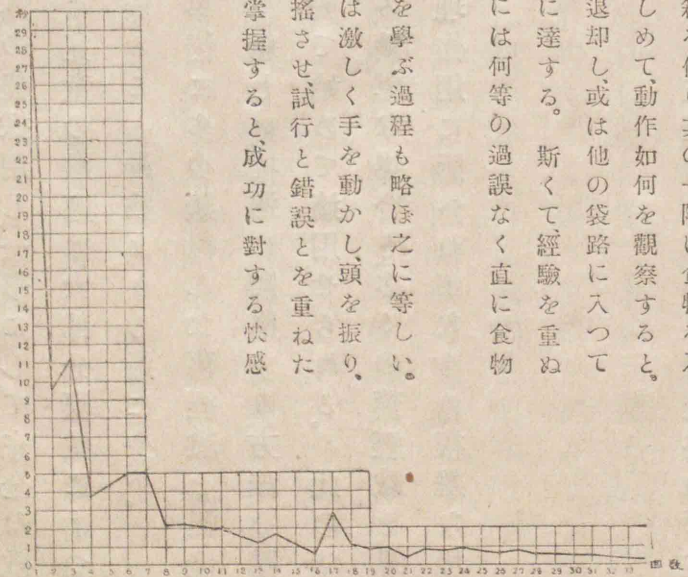 しめて、動作如何を觀察すると。
退却し、或は他の袋路に入つて
に達する。斯くて、經驗を重ぬ
には何等の過誤なく直に食物
を學ぶ過程も略ぼ之に等しい。
は激しく手を動かし、頭を振り、
搖させ、試行と錯誤とを重ねた
掌握すると、成功に對する快感
29
28
27
26
25
24
23
22
21
20
19
18
17
16
15
14
13
12
11
10
9
8
7
6
5
4
3
2
1
0
1 2 3 4 5 6 7 8 9 10 11 12 13 14 15 16 17 18 19 20 21 22 23 24 25 26 27 28 29 30 31 32 33 回數